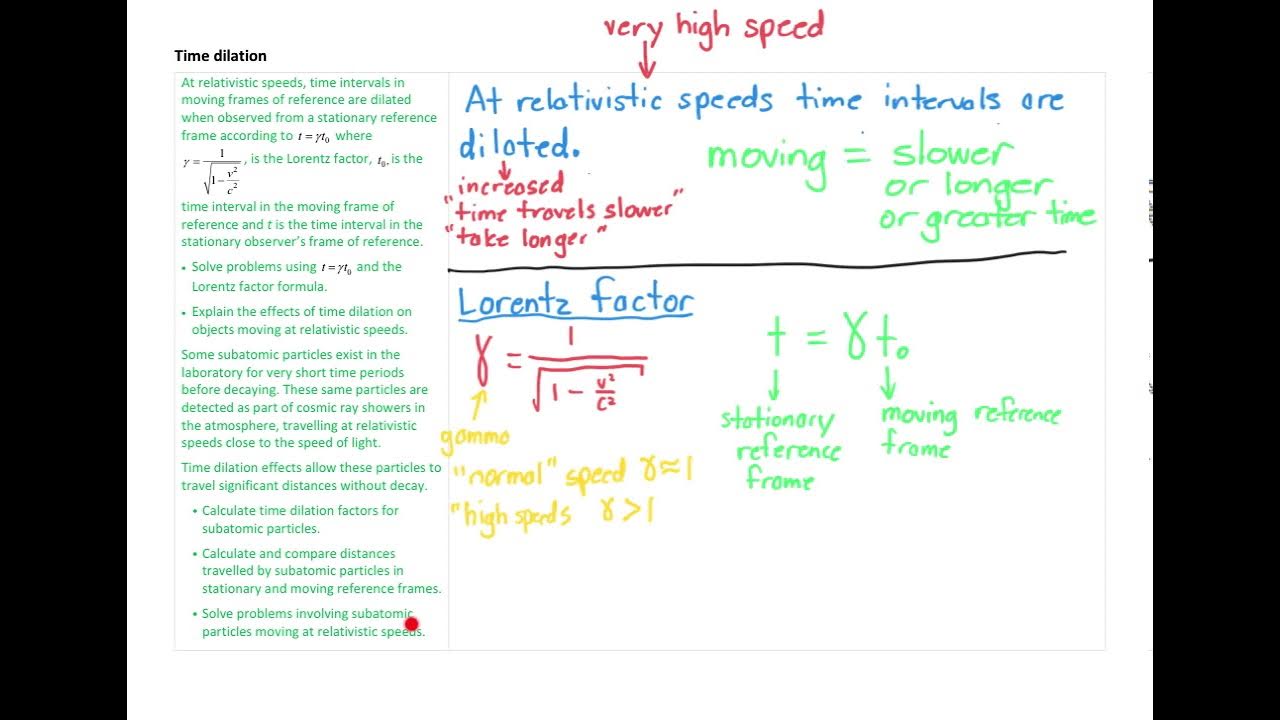 very high speed
Time dilation
At relativistic speeds, time intervals in
moving frames of reference are dilated
when observed from a stationary reference
frame according to t = γt₀ where
γ = 1/√(1 − v²/c²), is the Lorentz factor, t₀, is the
time interval in the moving frame of
reference and t is the time interval in the
stationary observer's frame of reference.
• Solve problems using t = γt₀ and the
Lorentz factor formula.
• Explain the effects of time dilation on
objects moving at relativistic speeds.
Some subatomic particles exist in the
laboratory for very short time periods
before decaying. These same particles are
detected as part of cosmic ray showers in
the atmosphere, travelling at relativistic
speeds close to the speed of light.
Time dilation effects allow these particles to
travel significant distances without decay.
• Calculate time dilation factors for
subatomic particles.
• Calculate and compare distances
travelled by subatomic particles in
stationary and moving reference frames.
• Solve problems involving subatomic
particles moving at relativistic speeds.
At relativistic speeds time intervals are
dilated.
"increased
"time travels slower"
"take longer"
moving = slower
or longer
or greater time
Lorentz factor
γ = 1/√(1 − v²/c²)
gamma
"normal" speed γ ≈ 1
"high speeds γ > 1
t = γt₀
stationary
reference
frame
moving reference
frame